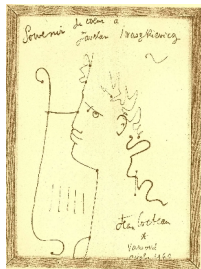 Souvenir de cœur à
Jarosław Iwaszkiewicz
Jean Cocteau
*
Varsovie
1960